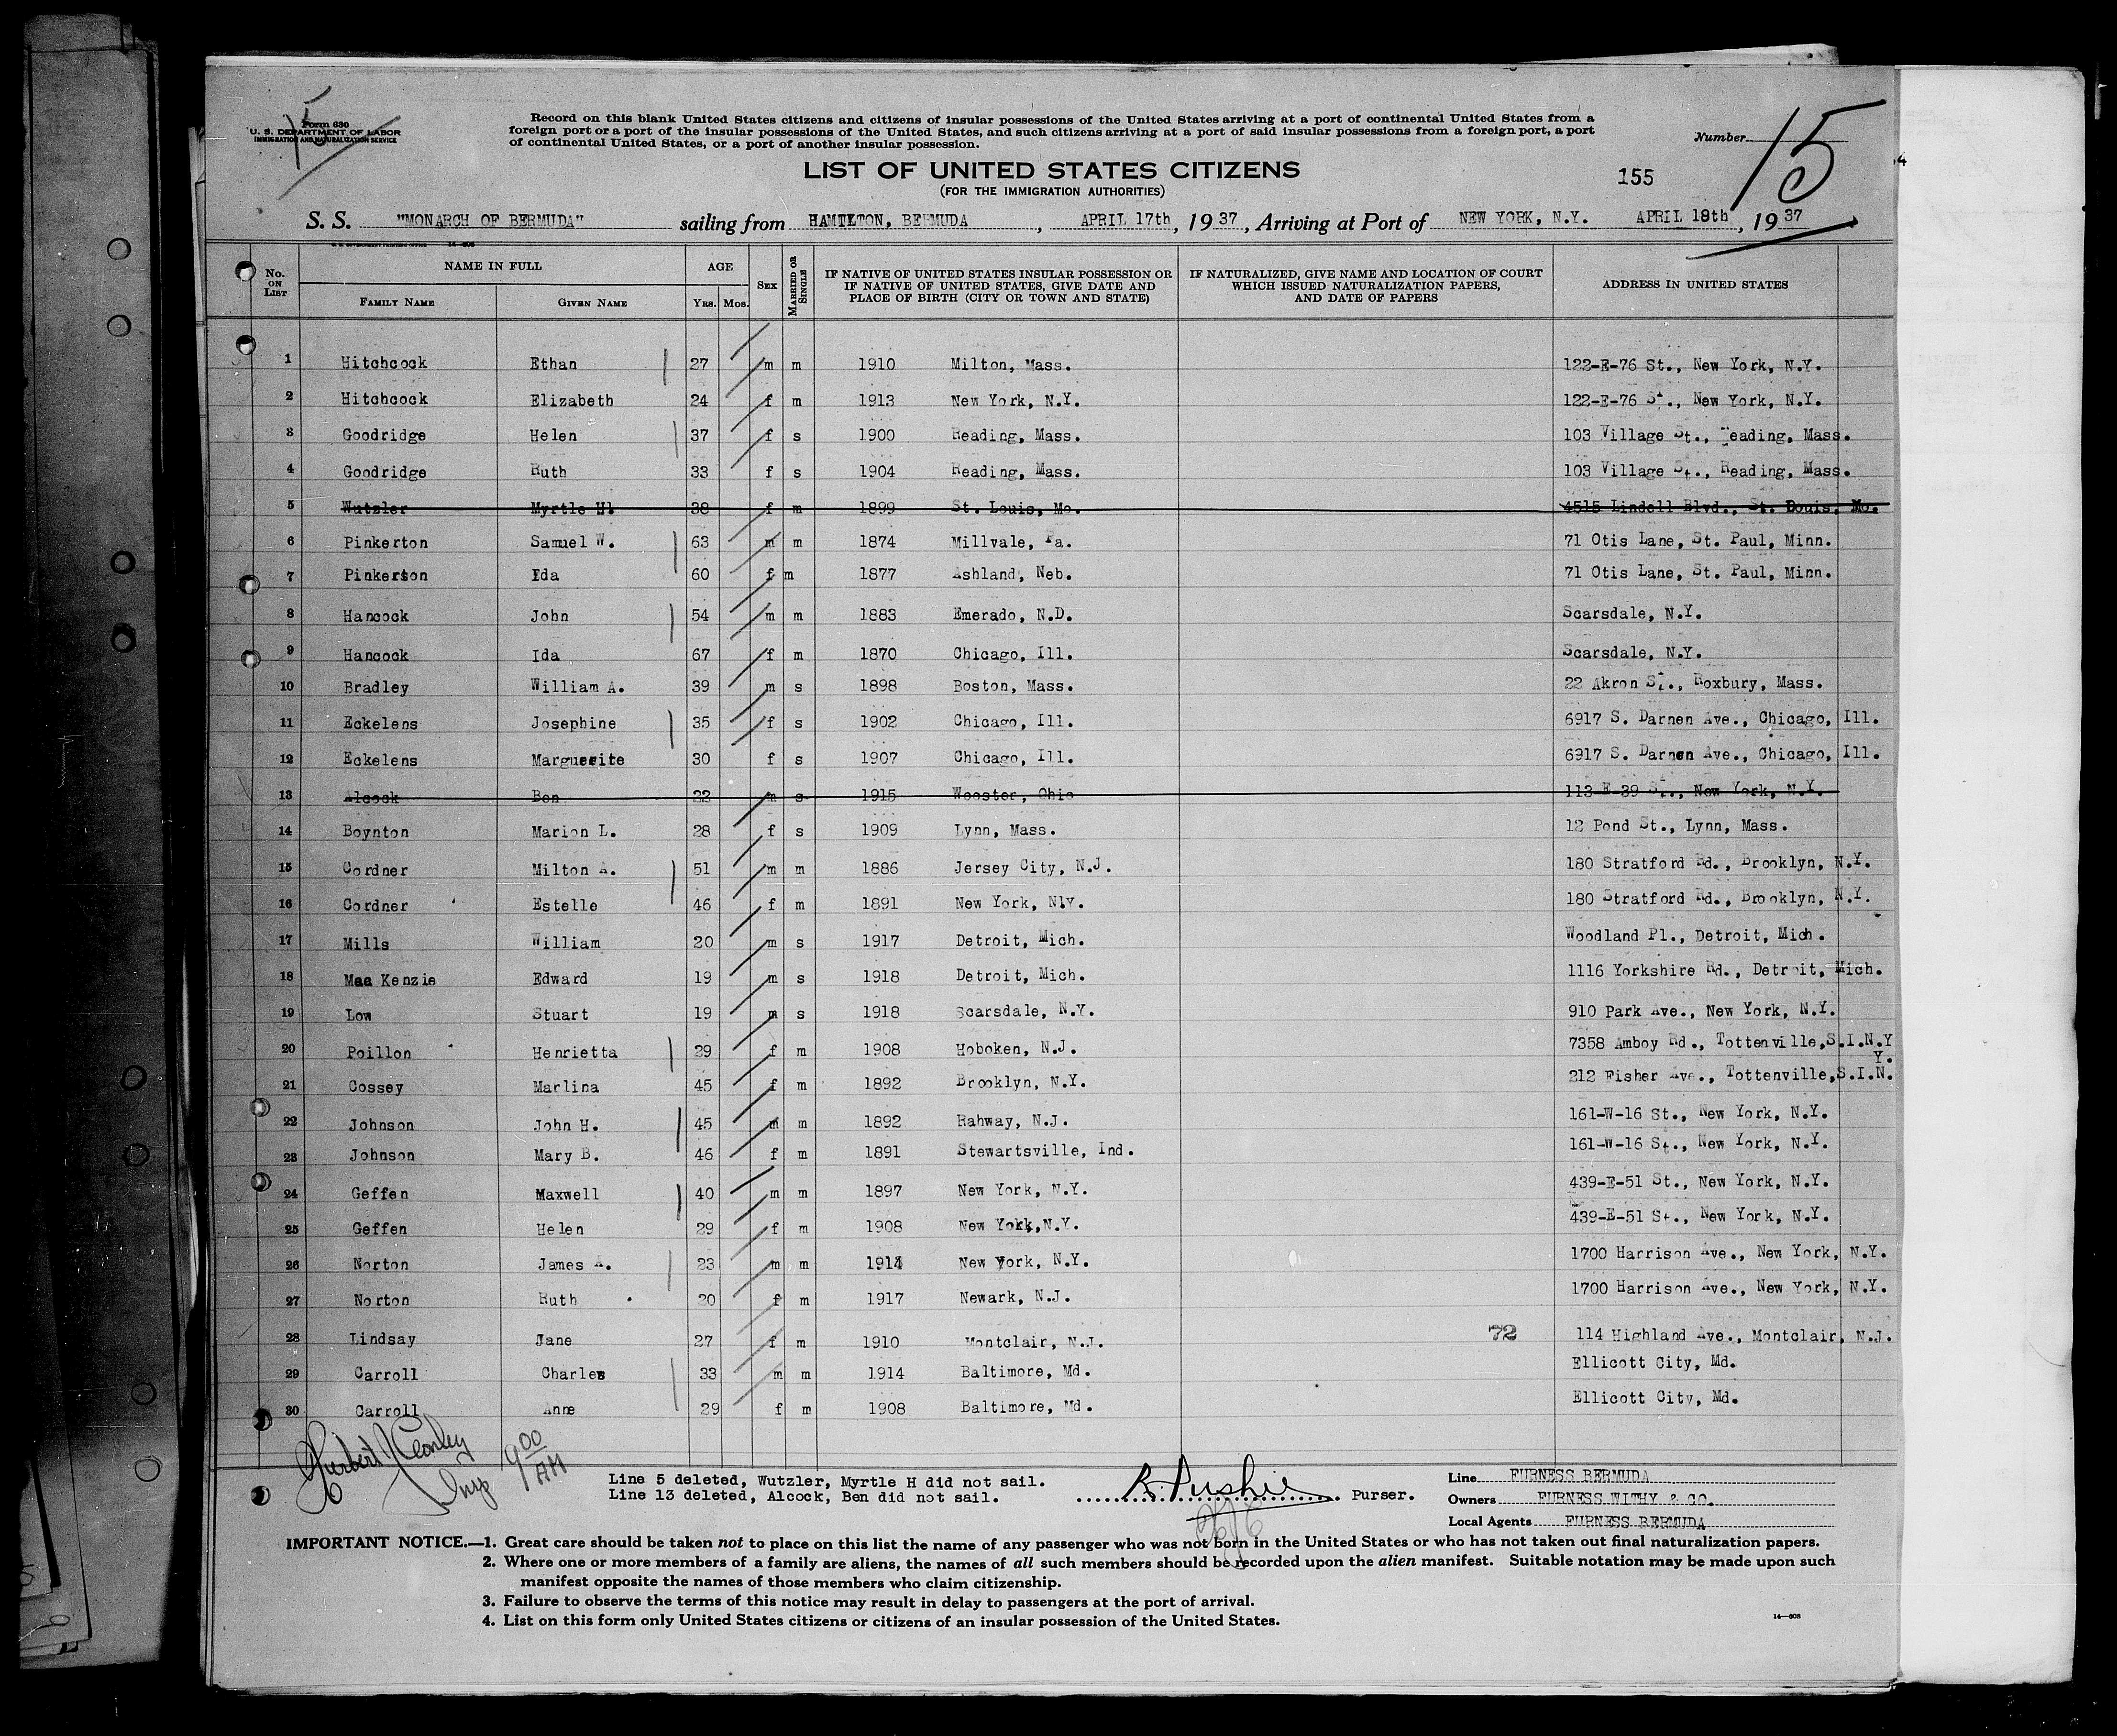 15
Form 630
U. S. DEPARTMENT OF LABOR
IMMIGRATION AND NATURALIZATION SERVICE
Record on this blank United States citizens and citizens of insular possessions of the United States arriving at a port of continental United States from a
foreign port or a port of the insular possessions of the United States, and such citizens arriving at a port of said insular possessions from a foreign port, a port
of continental United States, or a port of another insular possession.
Number 15
LIST OF UNITED STATES CITIZENS
(FOR THE IMMIGRATION AUTHORITIES)
155
S. S. "MONARCH OF BERMUDA" sailing from HAMILTON, BERMUDA, APRIL 17th, 1937, Arriving at Port of NEW YORK, N.Y. APRIL 18th, 1937
No. ON LIST NAME IN FULL FAMILY NAME GIVEN NAME AGE YRS. MOS. SEX MARRIED OR SINGLE IF NATIVE OF UNITED STATES INSULAR POSSESSION OR IF NATIVE OF UNITED STATES, GIVE DATE AND PLACE OF BIRTH (CITY OR TOWN AND STATE) IF NATURALIZED, GIVE NAME AND LOCATION OF COURT WHICH ISSUED NATURALIZATION PAPERS, AND DATE OF PAPERS ADDRESS IN UNITED STATES
1 Hitchcock Ethan 27 m m 1910 Milton, Mass. 122-E-76 St., New York, N.Y.
2 Hitchcock Elizabeth 24 f m 1913 New York, N.Y. 122-E-76 St., New York, N.Y.
3 Goodridge Helen 37 f s 1900 Reading, Mass. 103 Village St., Reading, Mass.
4 Goodridge Ruth 33 f s 1904 Reading, Mass. 103 Village St., Reading, Mass.
5 Wutzler Myrtle H. 38 f m 1899 St. Louis, Mo. 4515 Lindell Blvd., St. Douis, Mo.
6 Pinkerton Samuel W. 63 m m 1874 Millvale, Pa. 71 Otis Lane, St. Paul, Minn.
7 Pinkerton Ida 60 f m 1877 Ashland, Neb. 71 Otis Lane, St. Paul, Minn.
8 Hancock John 54 m m 1883 Emerado, N.D. Scarsdale, N.Y.
9 Hancock Ida 67 f m 1870 Chicago, Ill. Scarsdale, N.Y.
10 Bradley William A. 39 m s 1898 Boston, Mass. 22 Akron St., Roxbury, Mass.
11 Eckelens Josephine 35 f s 1902 Chicago, Ill. 6917 S. Darnen Ave., Chicago, Ill.
12 Eckelens Marguerite 30 f s 1907 Chicago, Ill. 6917 S. Darnen Ave., Chicago, Ill.
13 Alcock Ben 22 m s 1915 Wooster, Ohio 113-E-39 St., New York, N.Y.
14 Boynton Marion L. 28 f s 1909 Lynn, Mass. 12 Pond St., Lynn, Mass.
15 Cordner Milton A. 51 m m 1886 Jersey City, N.J. 180 Stratford Rd., Brooklyn, N.Y.
16 Cordner Estelle 46 f m 1891 New York, N.Y. 180 Stratford Rd., Brooklyn, N.Y.
17 Mills William 20 m s 1917 Detroit, Mich. Woodland Pl., Detroit, Mich.
18 Mac Kenzie Edward 19 m s 1918 Detroit, Mich. 1116 Yorkshire Rd., Detroit, Mich.
19 Low Stuart 19 m s 1918 Scarsdale, N.Y. 910 Park Ave., New York, N.Y.
20 Poillon Henrietta 29 f m 1908 Hoboken, N.J. 7358 Amboy Rd., Tottenville,S.I.N.Y
21 Cossey Marlina 45 f m 1892 Brooklyn, N.Y. 212 Fisher Ave., Tottenville,S.I.N.Y.
22 Johnson John H. 45 m m 1892 Rahway, N.J. 161-W-16 St., New York, N.Y.
23 Johnson Mary B. 46 f m 1891 Stewartsville, Ind. 161-W-16 St., New York, N.Y.
24 Geffen Maxwell 40 m m 1897 New York, N.Y. 439-E-51 St., New York, N.Y.
25 Geffen Helen 29 f m 1908 New York,N.Y. 439-E-51 St., New York, N.Y.
26 Norton James A. 23 m m 1914 New York, N.Y. 1700 Harrison Ave., New York, N.Y.
27 Norton Ruth 20 f m 1917 Newark, N.J. 1700 Harrison Ave., New York, N.Y.
28 Lindsay Jane 27 f m 1910 Montclair, N.J. 72 114 Highland Ave., Montclair, N.J.
29 Carroll Charles 33 m m 1914 Baltimore, Md. Ellicott City, Md.
30 Carroll Anne 29 f m 1908 Baltimore, Md. Ellicott City, Md.
9 00 AM
Line 5 deleted, Wutzler, Myrtle H did not sail.
Line 13 deleted, Alcock, Ben did not sail.
Purser.
Line FURNESS BERMUDA
Owners FURNESS WITHY & CO.
Local Agents FURNESS BERMUDA
IMPORTANT NOTICE.—1. Great care should be taken not to place on this list the name of any passenger who was not born in the United States or who has not taken out final naturalization papers.
2. Where one or more members of a family are aliens, the names of all such members should be recorded upon the alien manifest. Suitable notation may be made upon such
manifest opposite the names of those members who claim citizenship.
3. Failure to observe the terms of this notice may result in delay to passengers at the port of arrival.
4. List on this form only United States citizens or citizens of an insular possession of the United States.